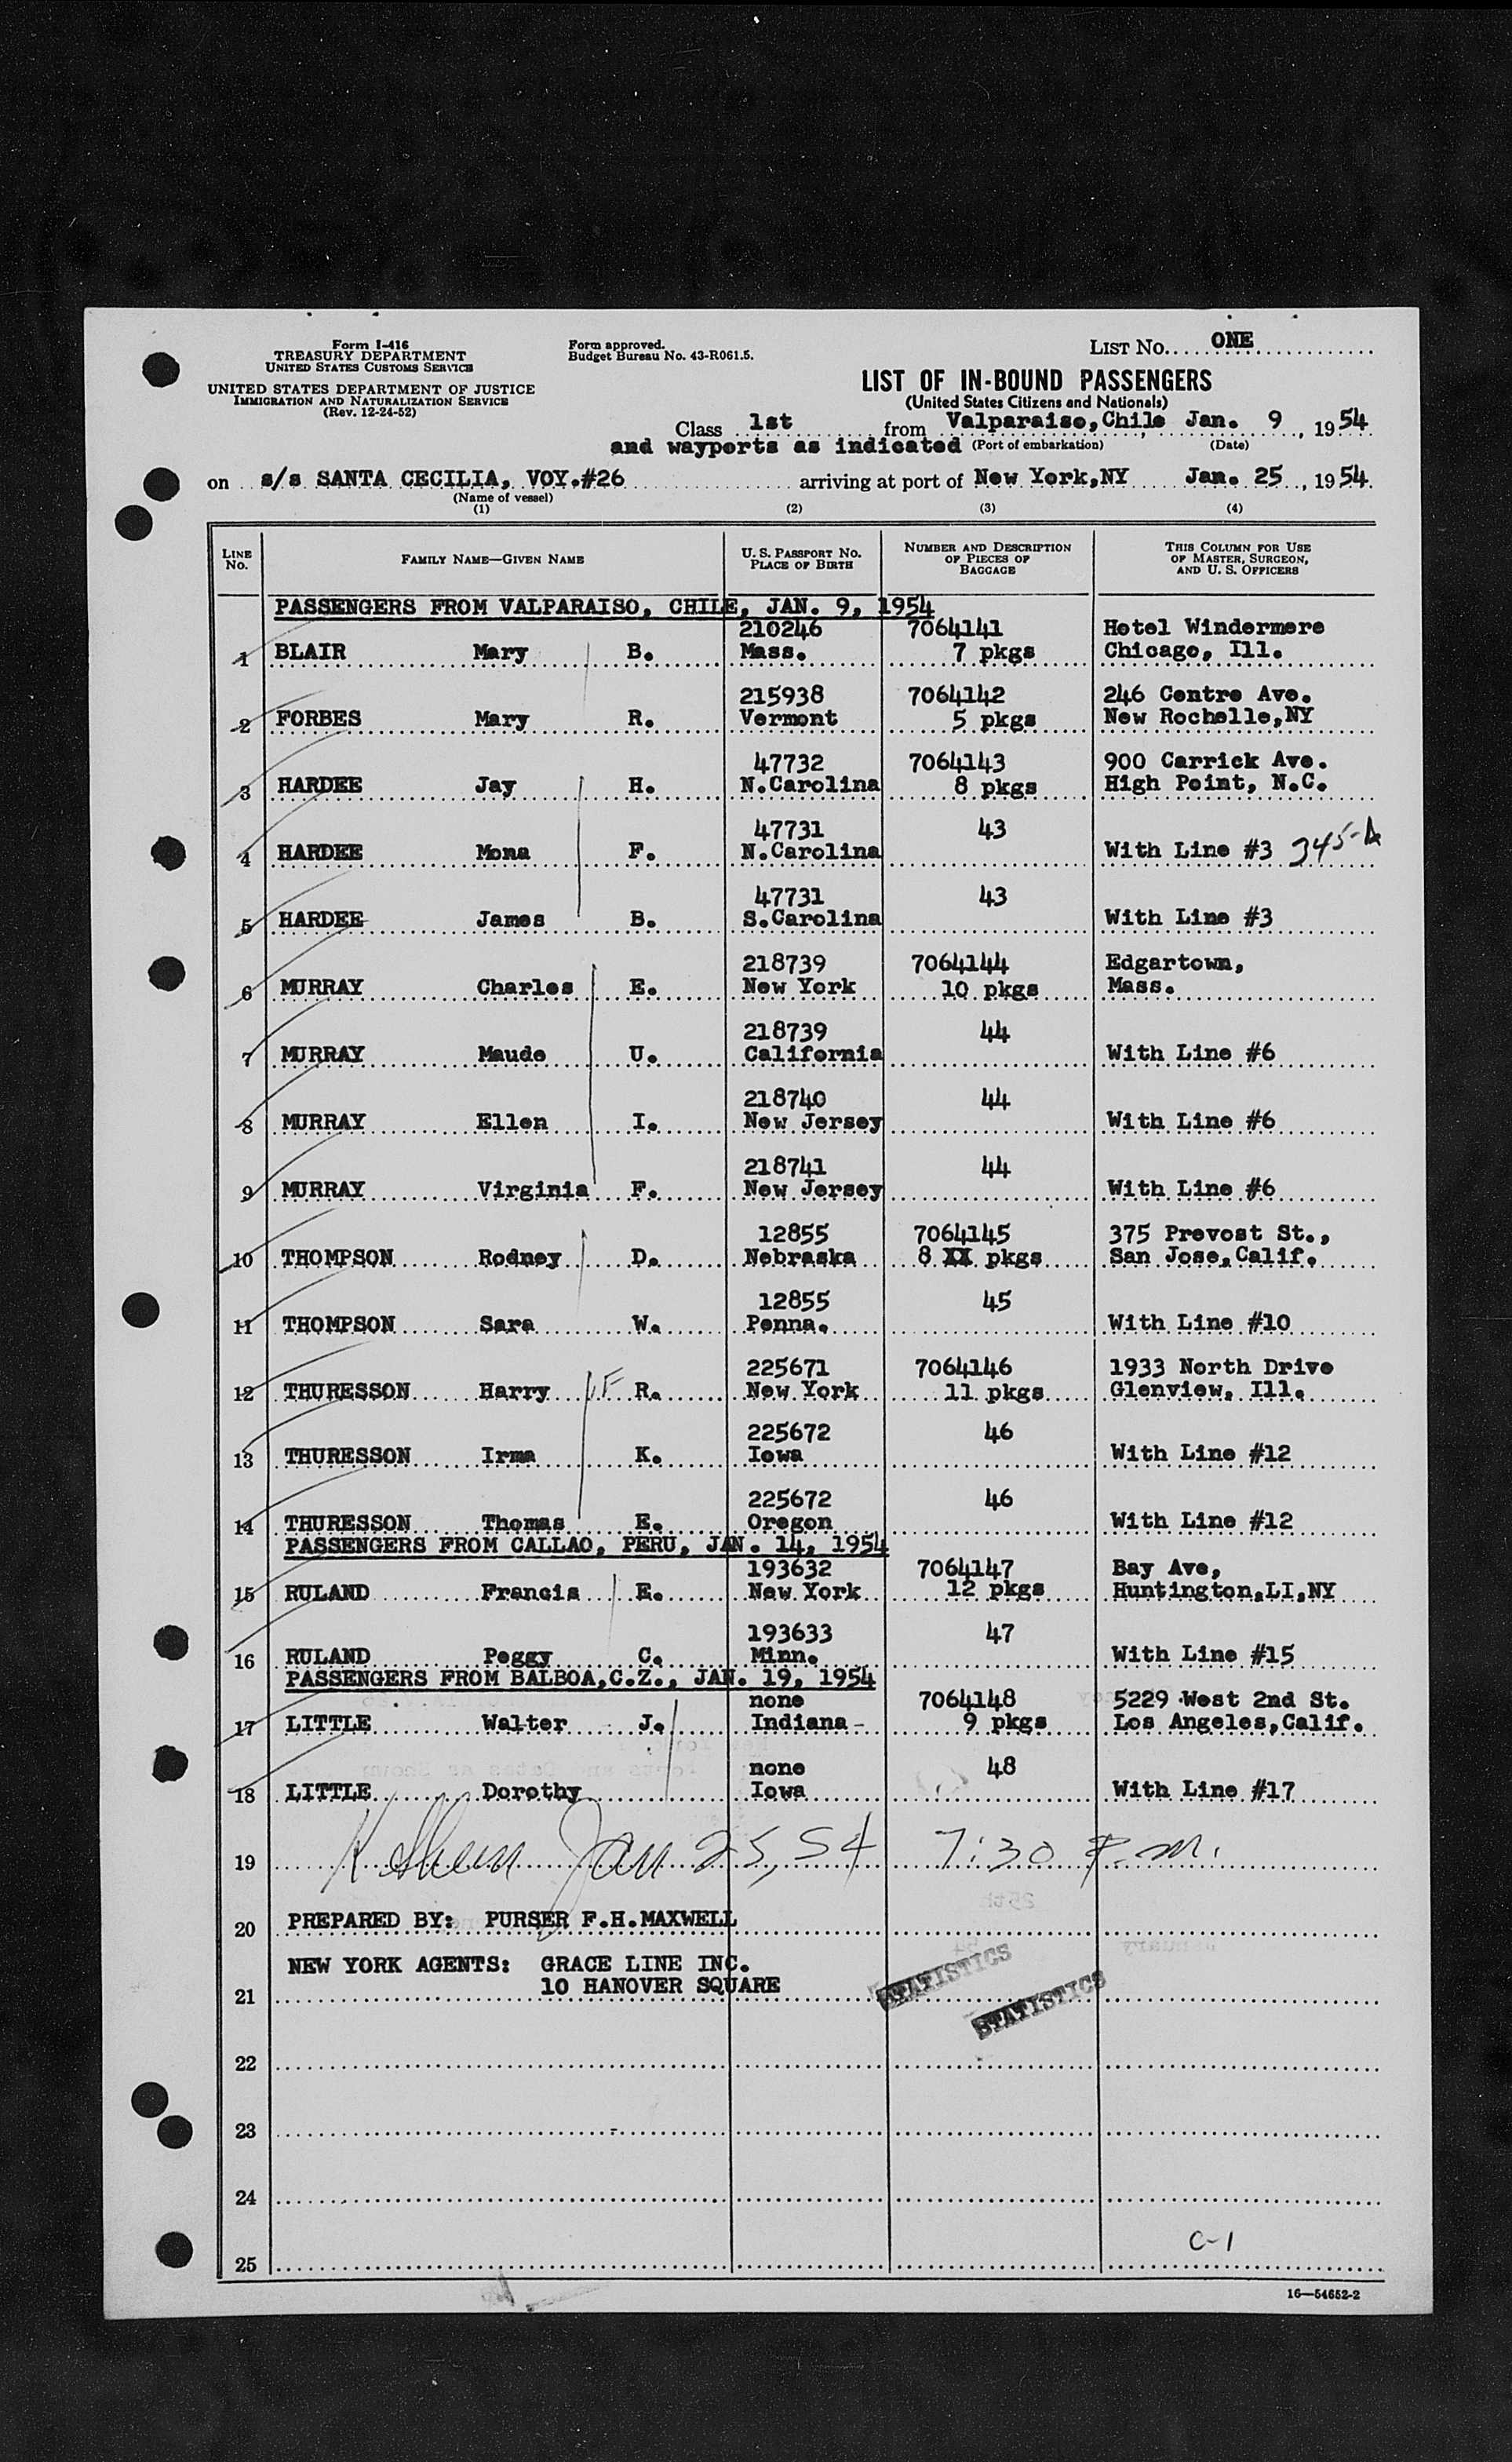 Form I-416
TREASURY DEPARTMENT
UNITED STATES CUSTOMS SERVICE
UNITED STATES DEPARTMENT OF JUSTICE
IMMIGRATION AND NATURALIZATION SERVICE
(Rev. 12-24-52)
Form approved.
Budget Bureau No. 43-R061.5.
LIST No. ONE
LIST OF IN-BOUND PASSENGERS
(United States Citizens and Nationals)
Class 1st from Valparaiso, Chile Jan. 9, 1954
and wayports as indicated (Port of embarkation) (Date)
on s/s SANTA CECILIA, VOY.#26 arriving at port of New York,NY Jan. 25, 1954
(Name of vessel)
(1) (2) (3) (4)
LINE No. FAMILY NAME—GIVEN NAME U. S. PASSPORT NO. PLACE OF BIRTH NUMBER AND DESCRIPTION OF PIECES OF BAGGAGE THIS COLUMN FOR USE OF MASTER, SURGEON, AND U. S. OFFICERS
PASSENGERS FROM VALPARAISO, CHILE, JAN. 9, 1954
210246 7064141 Hotel Windermere
1 BLAIR Mary B. Mass. 7 pkgs Chicago, Ill.
215938 7064142 246 Centre Ave.
2 FORBES Mary R. Vermont 5 pkgs New Rochelle,NY
47732 7064143 900 Carrick Ave.
3 HARDEE Jay H. N.Carolina 8 pkgs High Point, N.C.
47731 43
4 HARDEE Mona F. N.Carolina With Line #3 345-A
47731 43
5 HARDEE James B. S.Carolina With Line #3
218739 7064144 Edgartown,
6 MURRAY Charles E. New York 10 pkgs Mass.
218739 44
7 MURRAY Maude U. California With Line #6
218740 44
8 MURRAY Ellen I. New Jersey With Line #6
218741 44
9 MURRAY Virginia F. New Jersey With Line #6
12855 7064145 375 Prevost St.,
10 THOMPSON Rodney D. Nebraska 8 XX pkgs San Jose,Calif.
12855 45
11 THOMPSON Sara W. Penna. With Line #10
225671 7064146 1933 North Drive
12 THURESSON Harry F R. New York 11 pkgs Glenview, Ill.
225672 46
13 THURESSON Irma K. Iowa With Line #12
225672 46
14 THURESSON Thomas E. Oregon With Line #12
PASSENGERS FROM CALLAO, PERU, JAN. 14, 1954
193632 7064147 Bay Ave,
15 RULAND Francis E. New York 12 pkgs Huntington,LI,NY
193633 47
16 RULAND Peggy C. Minn. With Line #15
PASSENGERS FROM BALBOA,C.Z., JAN. 19, 1954
none 7064148 5229 West 2nd St.
17 LITTLE Walter J. Indiana 9 pkgs Los Angeles,Calif.
none 48
18 LITTLE Dorothy Iowa With Line #17
19 Jan 25, 54 7:30 P.M.
20 PREPARED BY: PURSER F.H.MAXWELL
NEW YORK AGENTS: GRACE LINE INC.
21 10 HANOVER SQUARE
STATISTICS
STATISTICS
22
23
24
C-1
25
16—54652-2